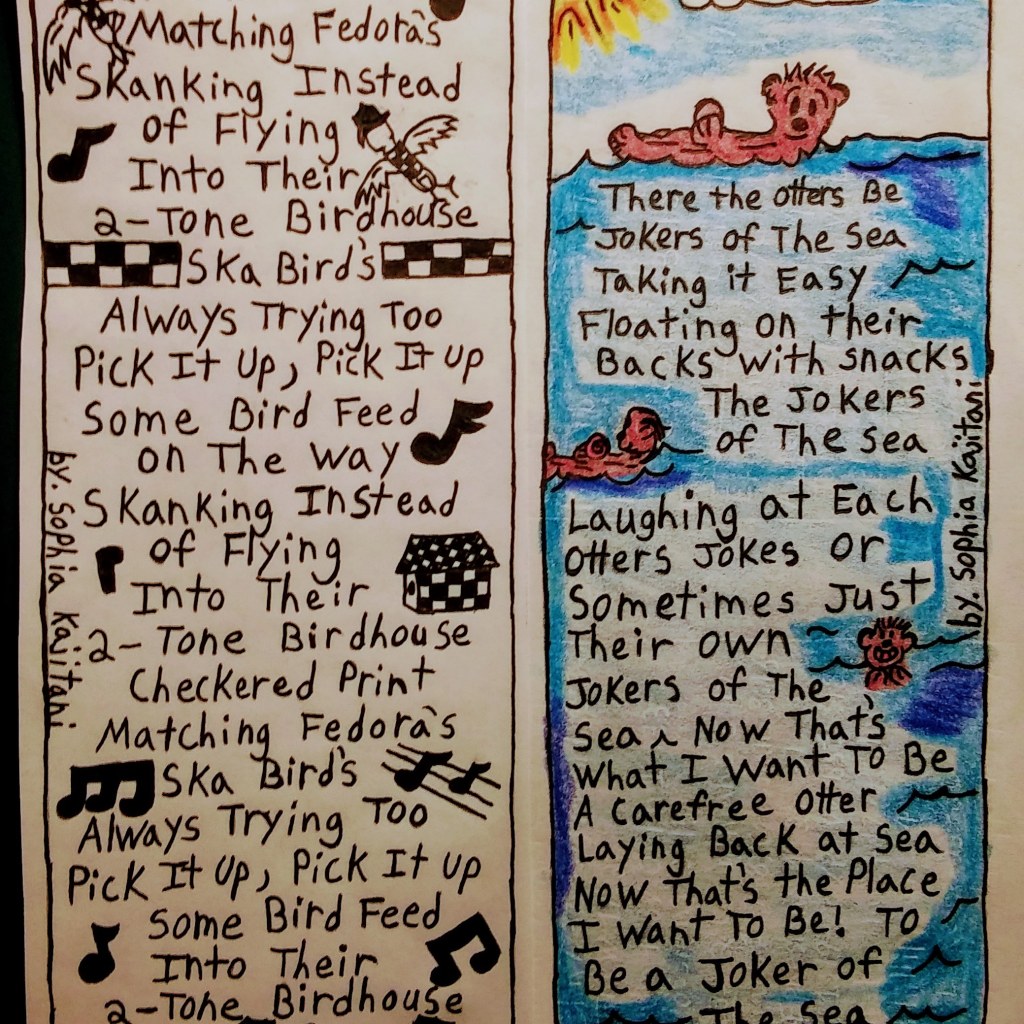 Matching Fedora's
Skanking Instead
of Flying
Into Their
2-Tone Birdhouse
Ska Bird's
Always Trying Too
Pick It Up, Pick It up
Some Bird Feed
on The way
Skanking Instead
of Flying
Into Their
2-Tone Birdhouse
Checkered Print
Matching Fedora's
Ska Bird's
Always Trying Too
Pick It Up, Pick It up
Some Bird Feed
Into Their
2-Tone Birdhouse
by. Sophia Kajitani
There the otters Be
Jokers of The Sea
Taking it Easy
Floating on their
Backs with snacks
The Jokers
of The Sea
Laughing at Each
Otters Jokes or
Sometimes Just
Their own
Jokers of The
Sea, Now That's
What I Want To Be
A carefree otter
Laying Back at Sea
Now That's the Place
I Want To Be! To
Be a Joker of
The Sea
by. Sophia Kajitani